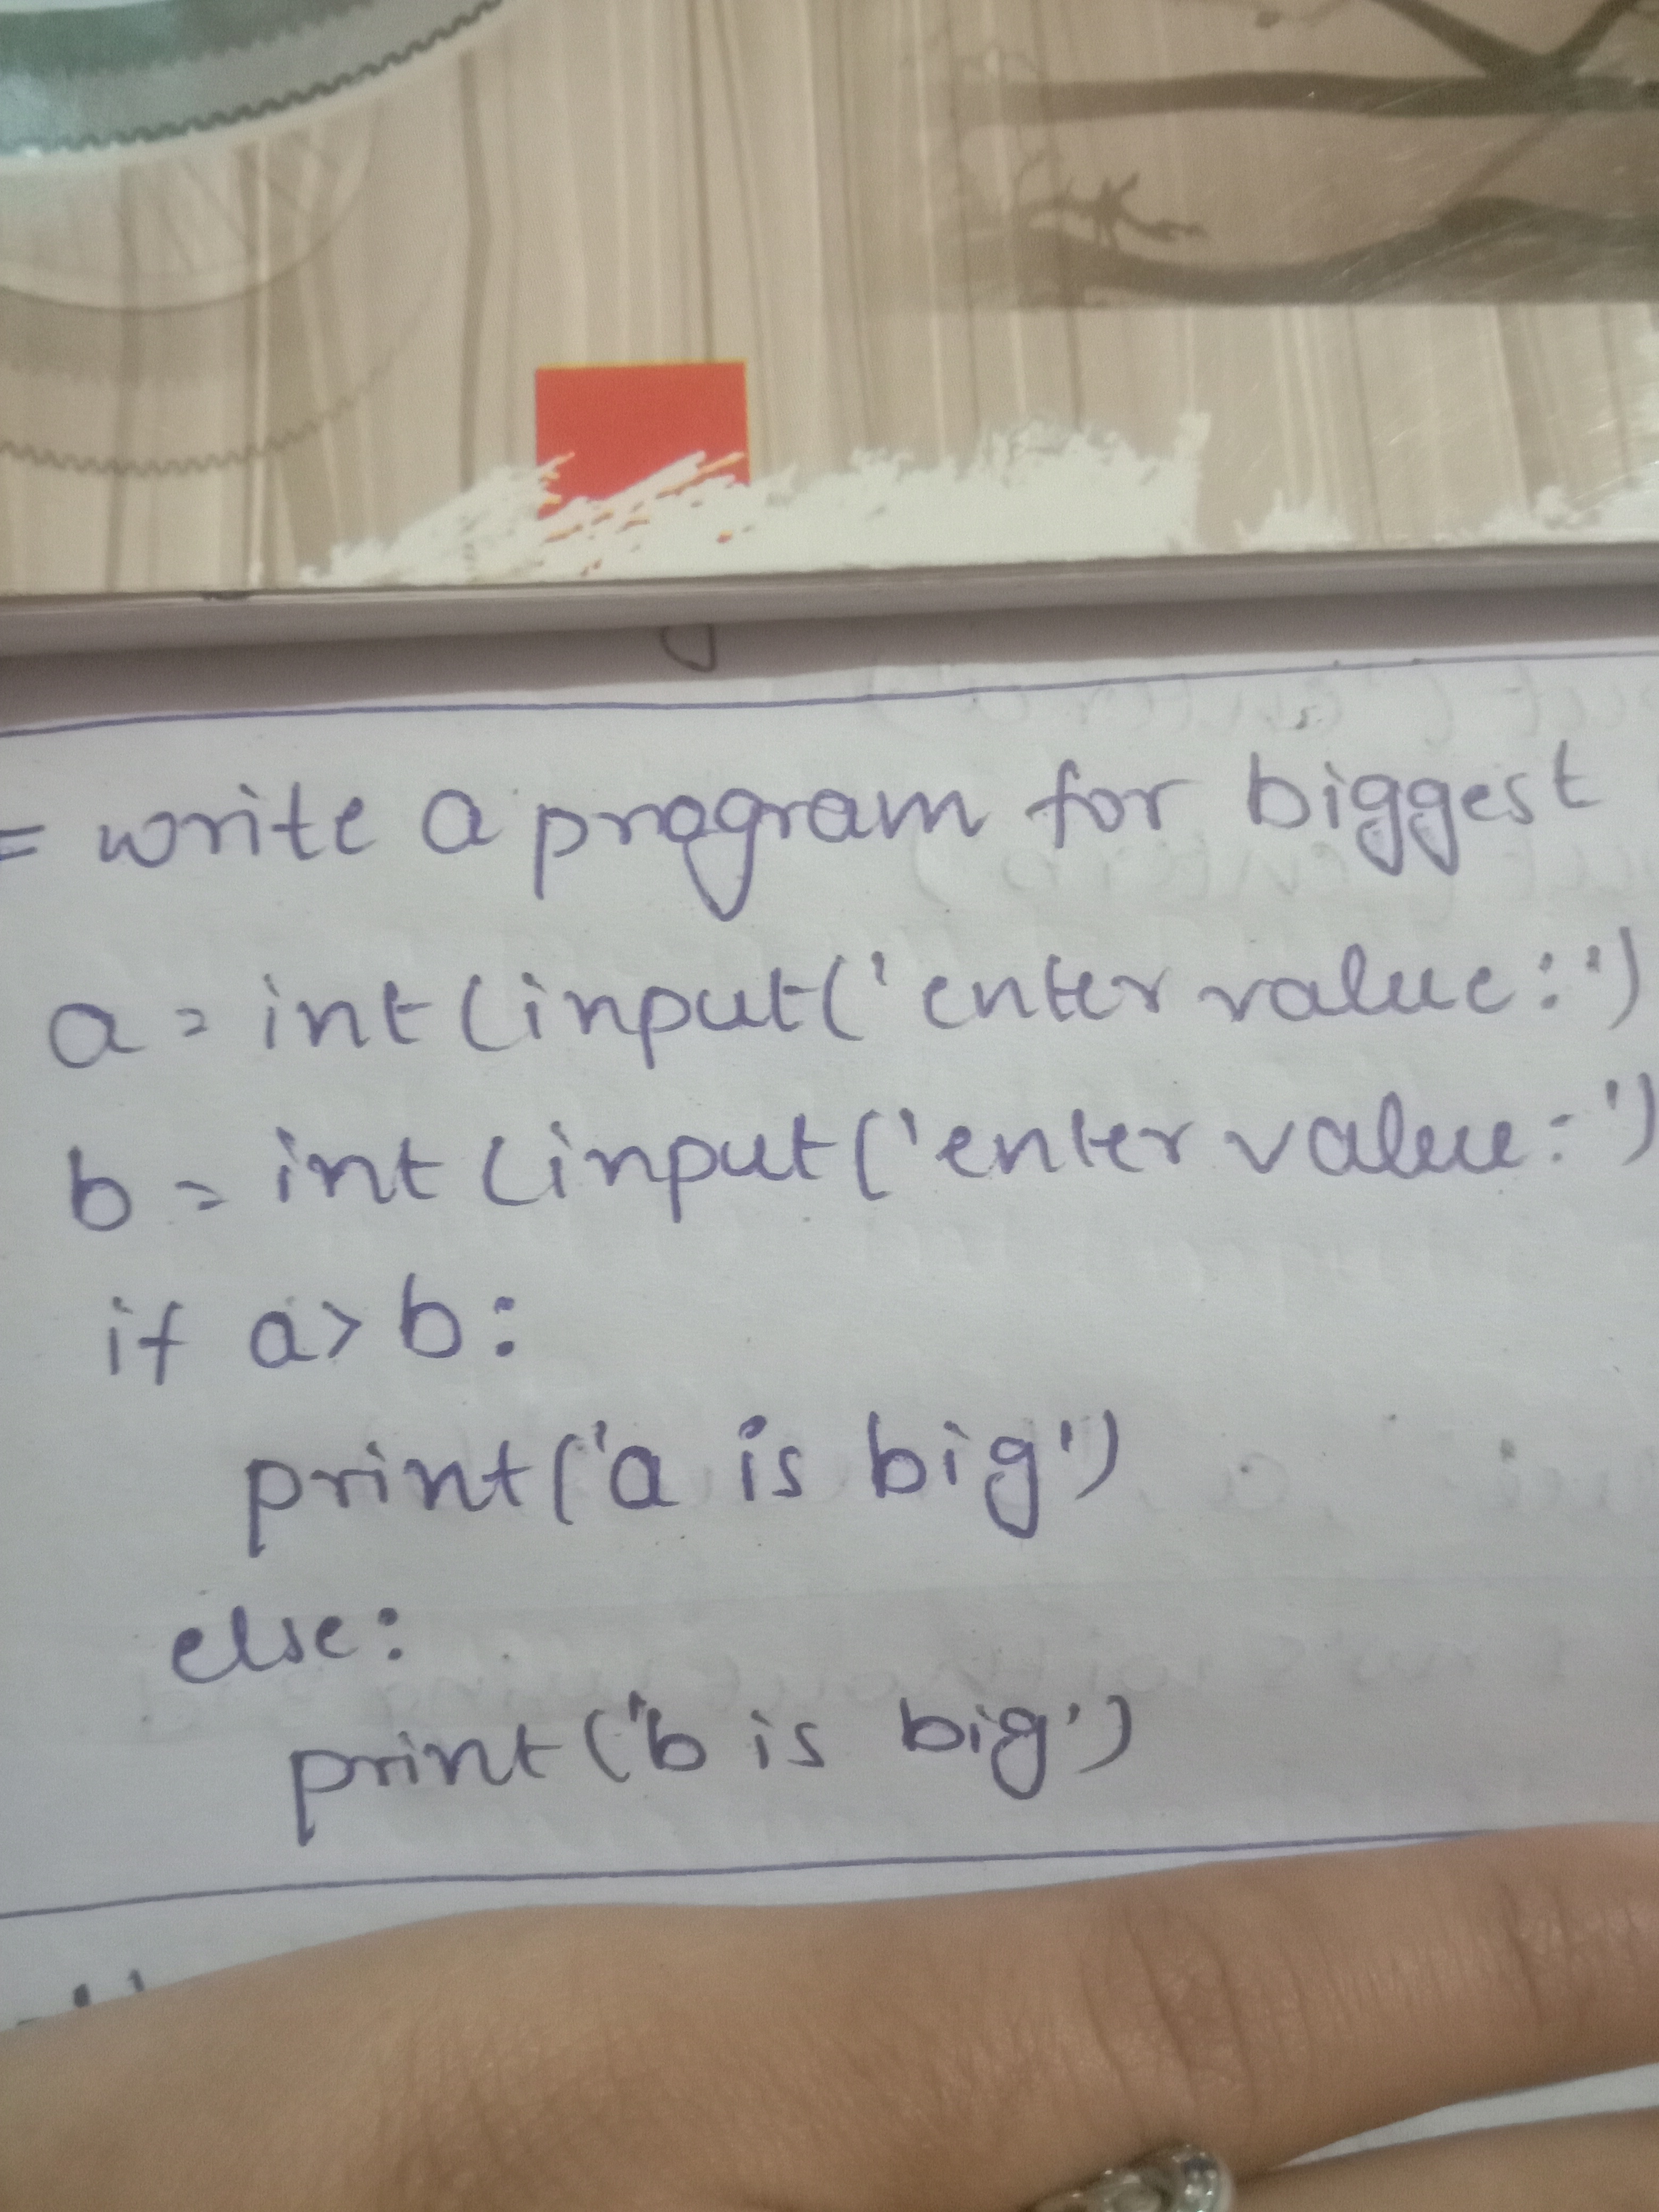 = write a program for biggest
a = int(input('enter value:')
b = int(input('enter value:')
if a>b:
print('a is big')
else:
print('b is big')